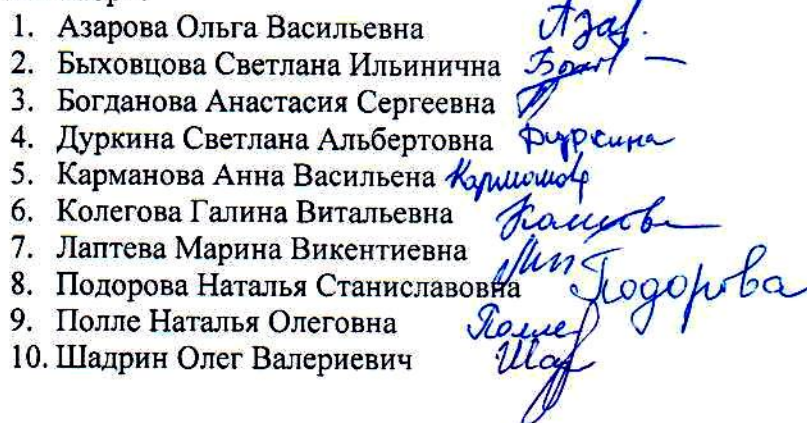 1. Азарова Ольга Васильевна Аза
2. Быховцова Светлана Ильинична
3. Богданова Анастасия Сергеевна
4. Дуркина Светлана Альбертовна Дуркина
5. Карманова Анна Васильена
6. Колегова Галина Витальевна
7. Лаптева Марина Викентиевна
8. Подорова Наталья Станиславовна Подорова
9. Полле Наталья Олеговна Полле
10. Шадрин Олег Валериевич Шад